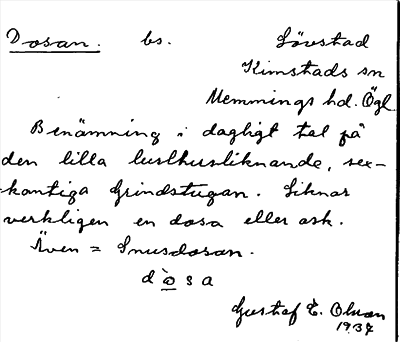 Dosan. bs. Lövstad
Kimstads sn
Memmings hd. Ögl.
Benämning i dagligt tal på
den lilla lusthusliknande, sex-
kantiga Grindstugan. Liknar
verkligen en dosa eller ask.
Även = Snusdosan.
dòsa
Gustaf E. Olsson
1934